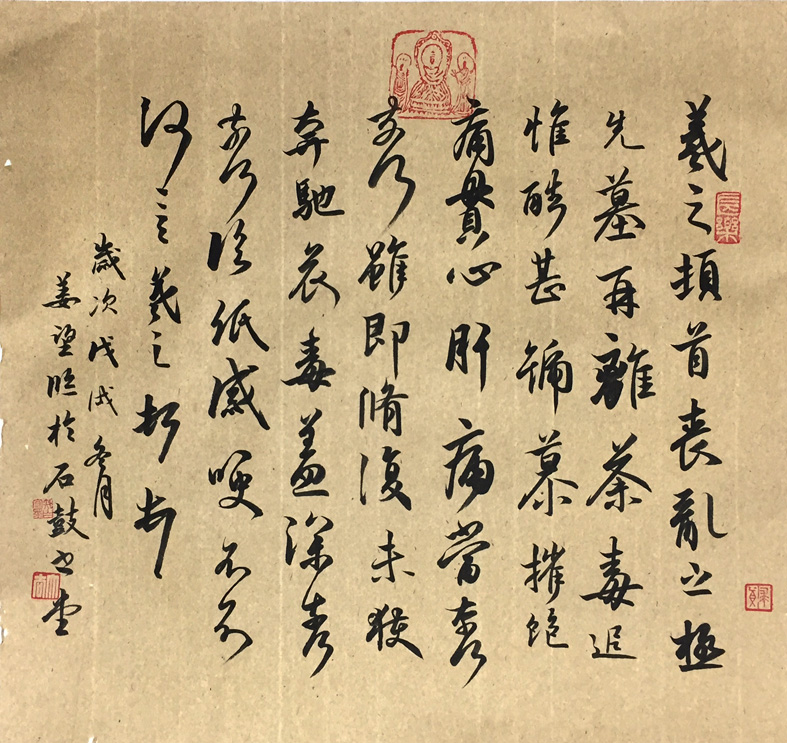 羲之頓首喪亂之極
先墓再離荼毒追
惟酷甚號慕摧絕
痛貫心肝痛當奈何
奈何雖即脩復未獲
奔馳哀毒益深奈何
奈何臨紙感哽不知
何言羲之頓首頓首
歲次戊戌冬月
姜望臨於石鼓书堂
長樂